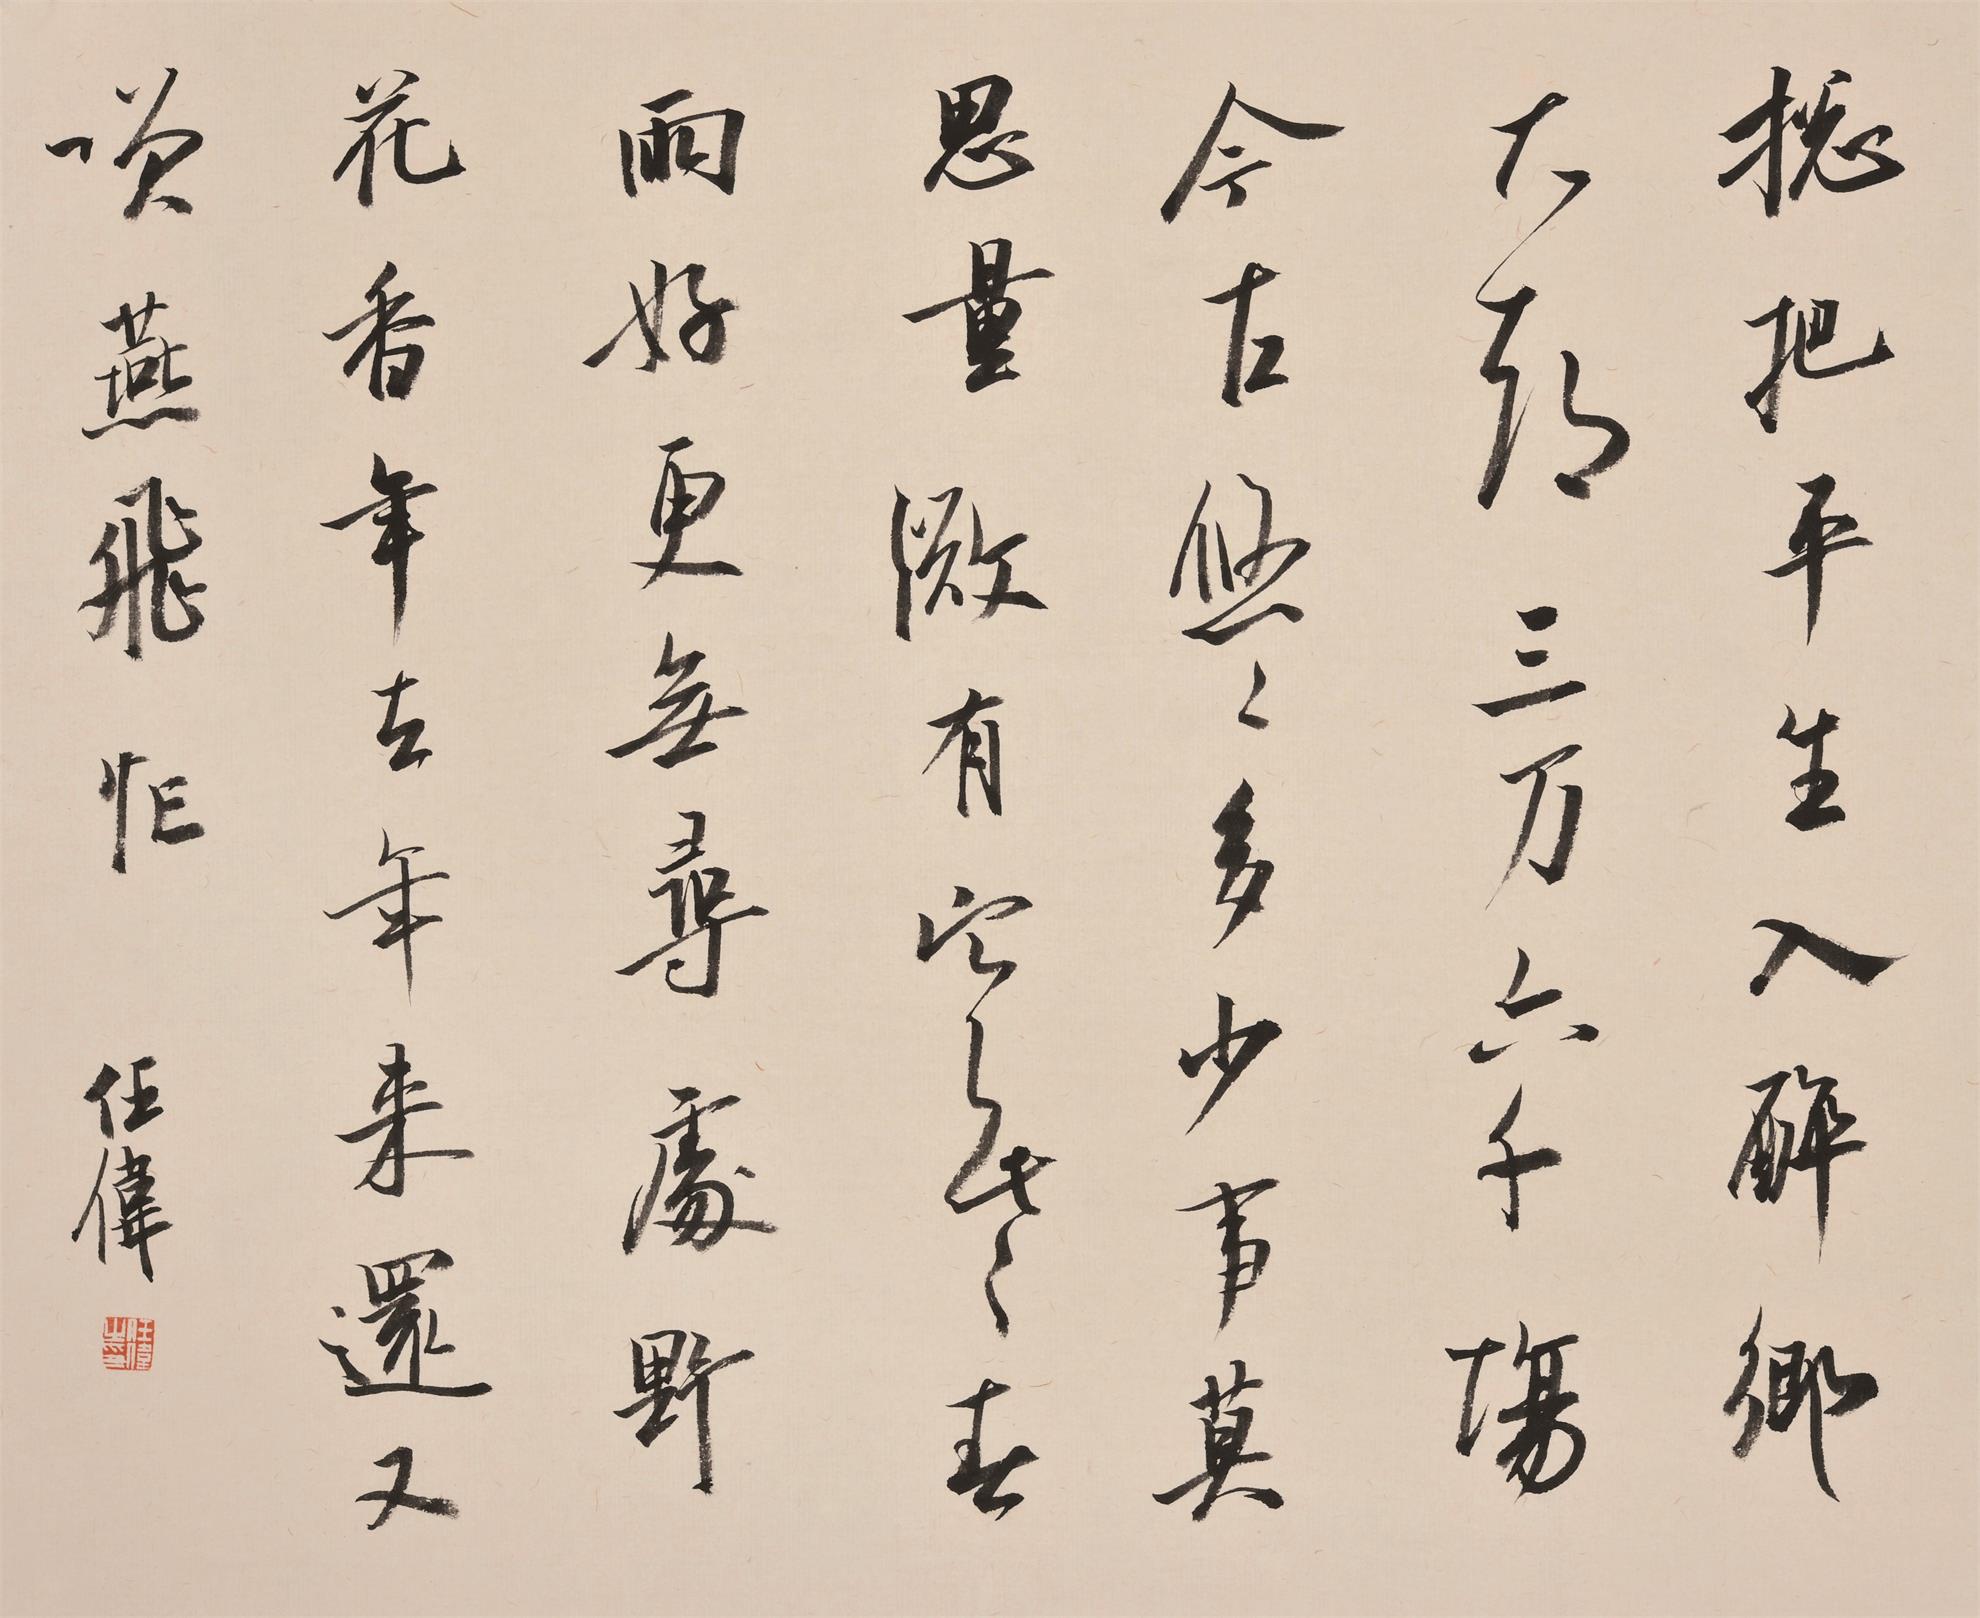 摠把平生入醉鄉
大都三万六千場
今古悠々多少事莫
思量微有寒些春
雨好更無尋處野
花香年去年来還又
咲燕飛忙
任偉
任偉之印